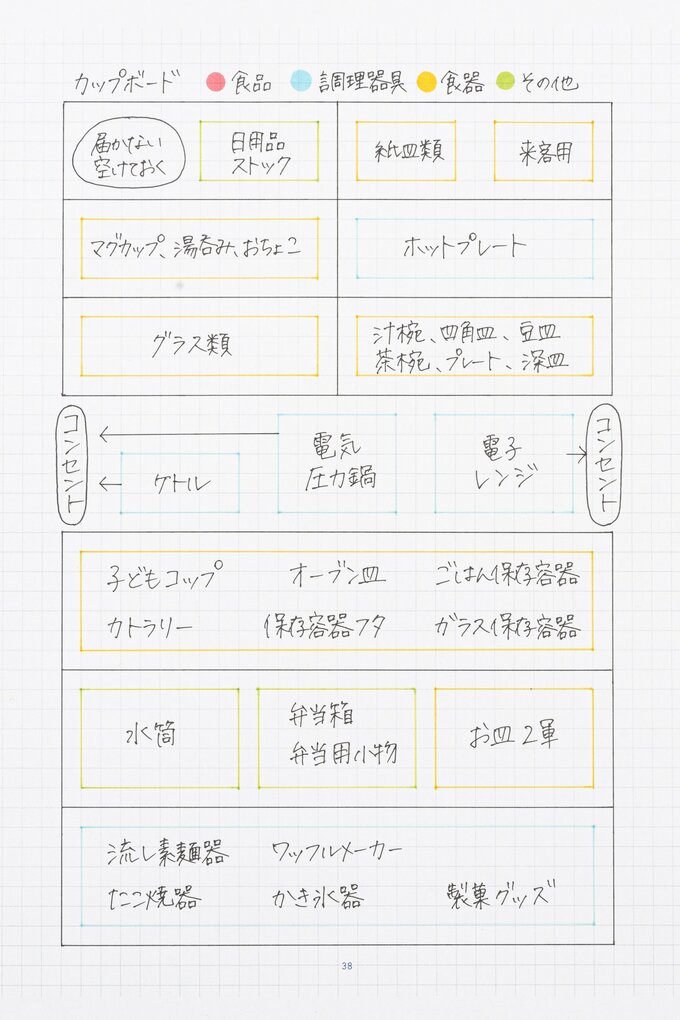 カップボード 食品 調理器具 食器 その他
届かない
空けておく
日用品
ストック
紙皿類
来客用
マグカップ、湯呑み、おちょこ
ホットプレート
グラス類
汁椀、四角皿、豆皿
茶椀、プレート、深皿
コンセント
ケトル
電気
圧力鍋
電子
レンジ
コンセント
子どもコップ オーブン皿 ごはん保存容器
カトラリー 保存容器フタ ガラス保存容器
水筒
弁当箱
弁当用小物
お皿2軍
流し素麺器 ワッフルメーカー
たこ焼器 かき氷器 製菓グッズ
38